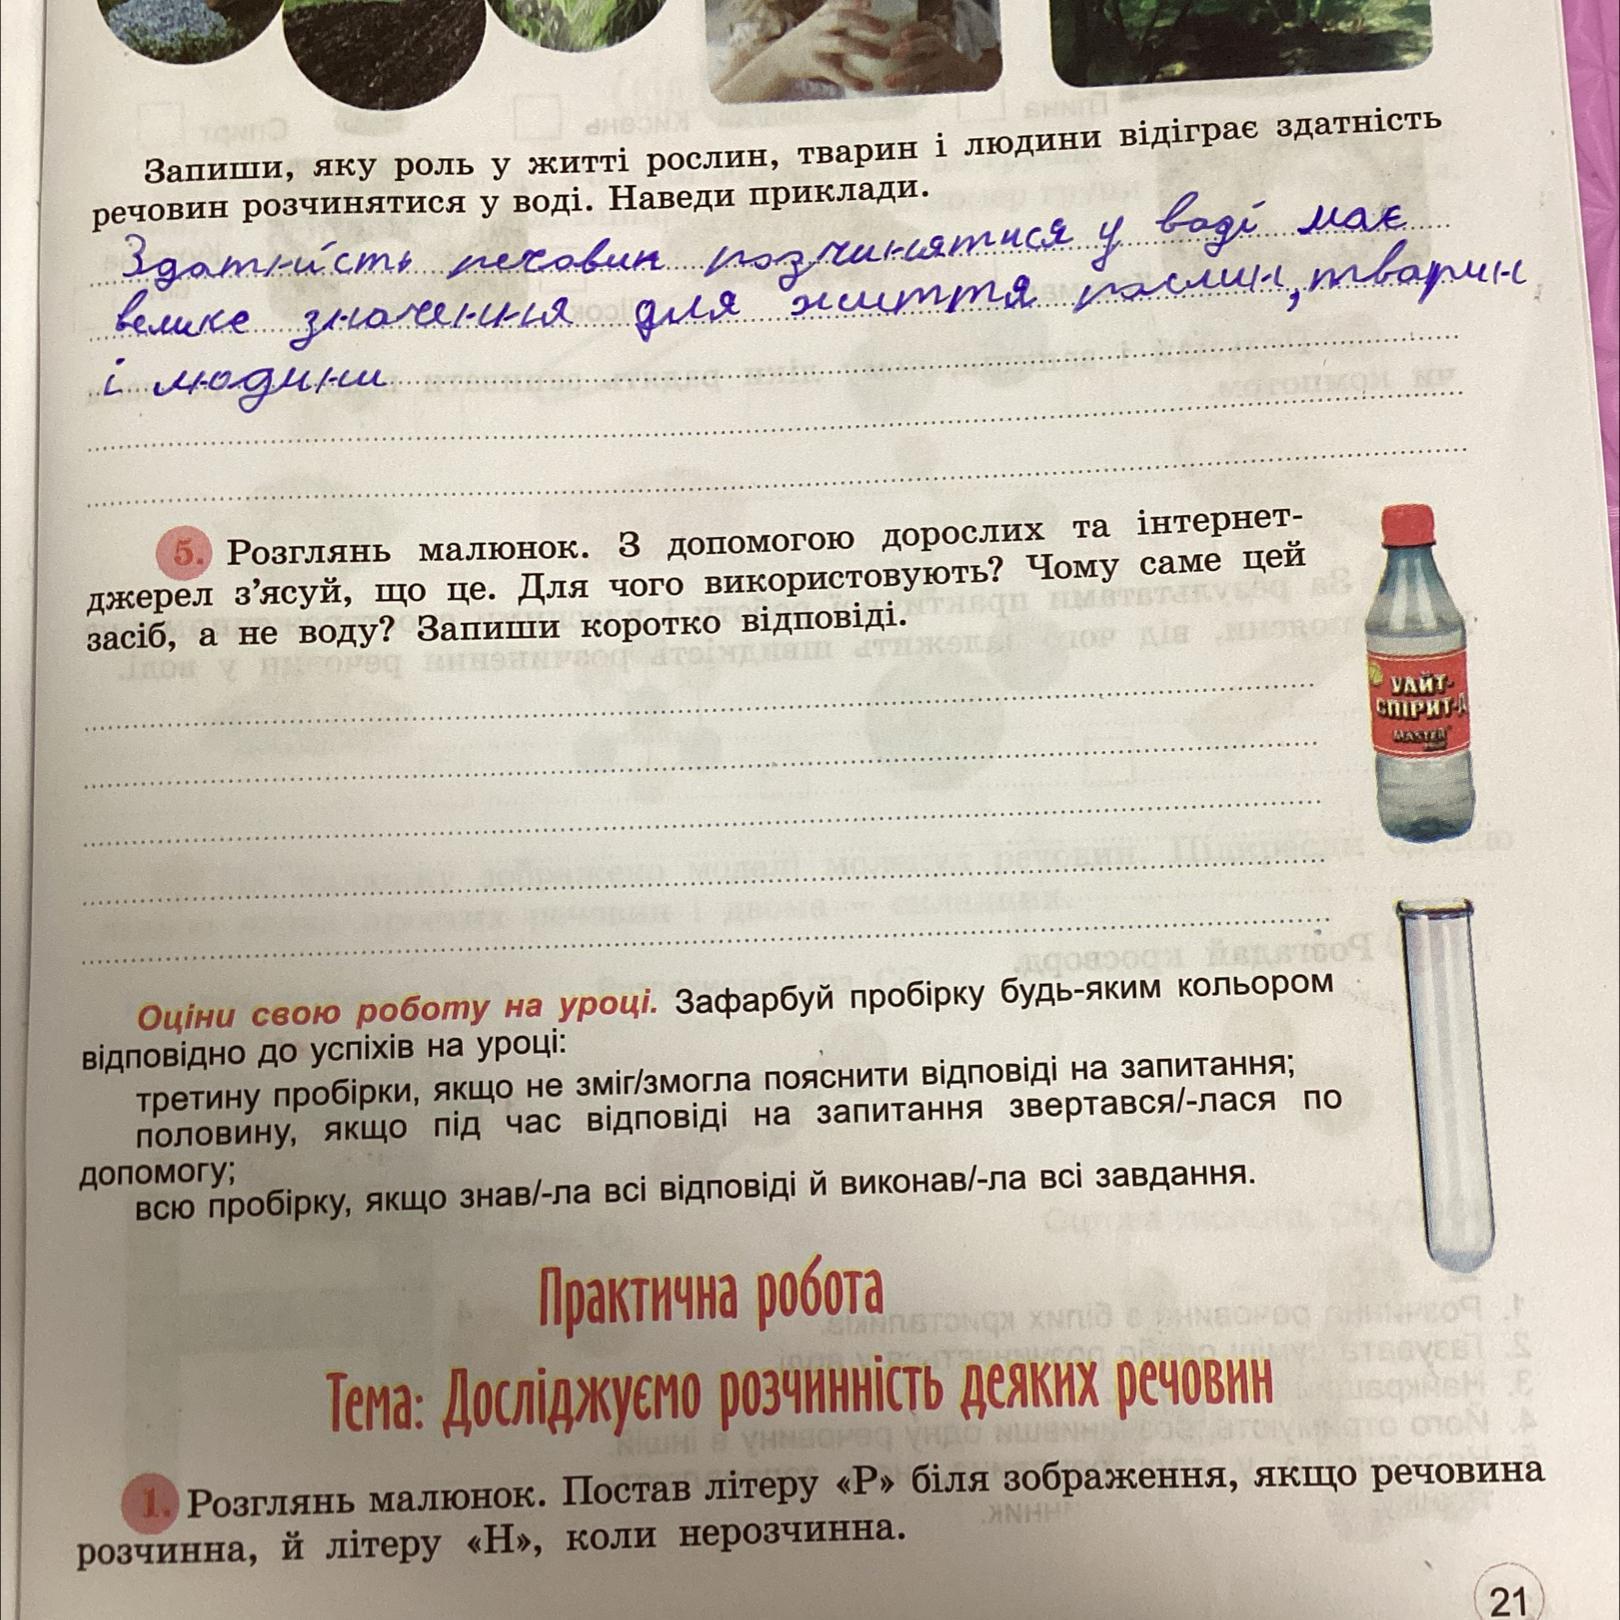 Запиши, яку роль у житті рослин, тварин і людини відіграє здатність
речовин розчинятися у воді. Наведи приклади.
Здатність речовин розчинятися у воді має
велике значення для життя рослин, тварин
і людини
5. Розглянь малюнок. З допомогою дорослих та інтернет-
джерел з’ясуй, що це. Для чого використовують? Чому саме цей
засіб, а не воду? Запиши коротко відповіді.
УАЙТ-
СПІРИТ-
MASTER
Оціни свою роботу на уроці. Зафарбуй пробірку будь-яким кольором
відповідно до успіхів на уроці:
третину пробірки, якщо не зміг/змогла пояснити відповіді на запитання;
половину, якщо під час відповіді на запитання звертався/-лася по
допомогу;
всю пробірку, якщо знав/-ла всі відповіді й виконав/-ла всі завдання.
Практична робота
Тема: Досліджуємо розчинність деяких речовин
1. Розглянь малюнок. Постав літеру «Р» біля зображення, якщо речовина
розчинна, й літеру «Н», коли нерозчинна.
21